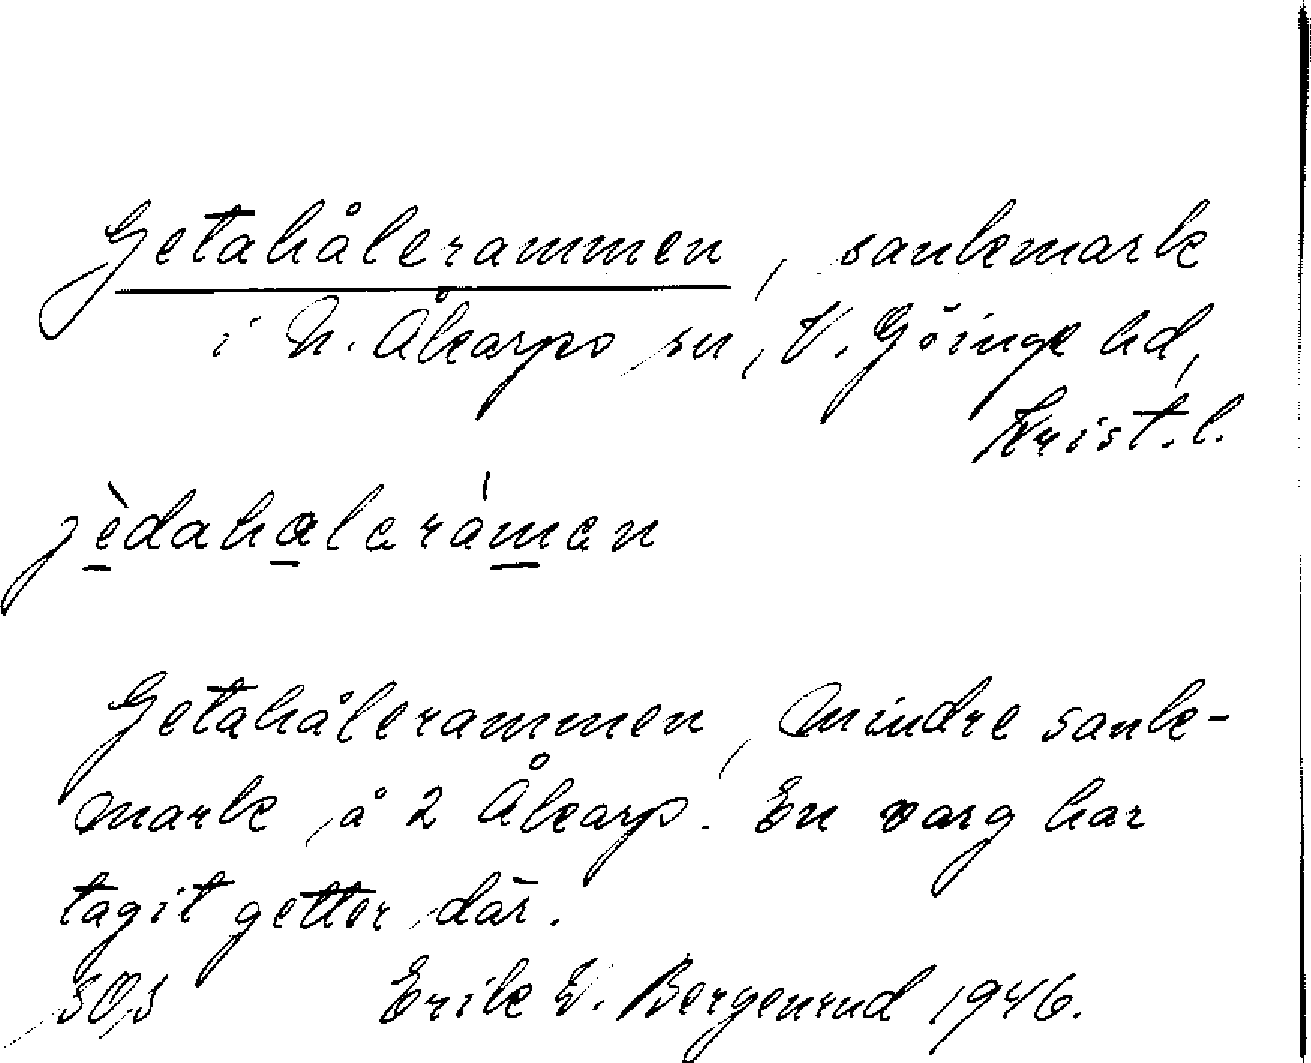 Getahålerammen, sankmark
i N. Åkarps sn, V. Göinge hd,
Krist.l.
jèdahalerámen
Getahålerammen, mindre sank-
mark å 2 Åkarp. En varg har
tagit getter där.
Erik E. Bergenrud 1946.